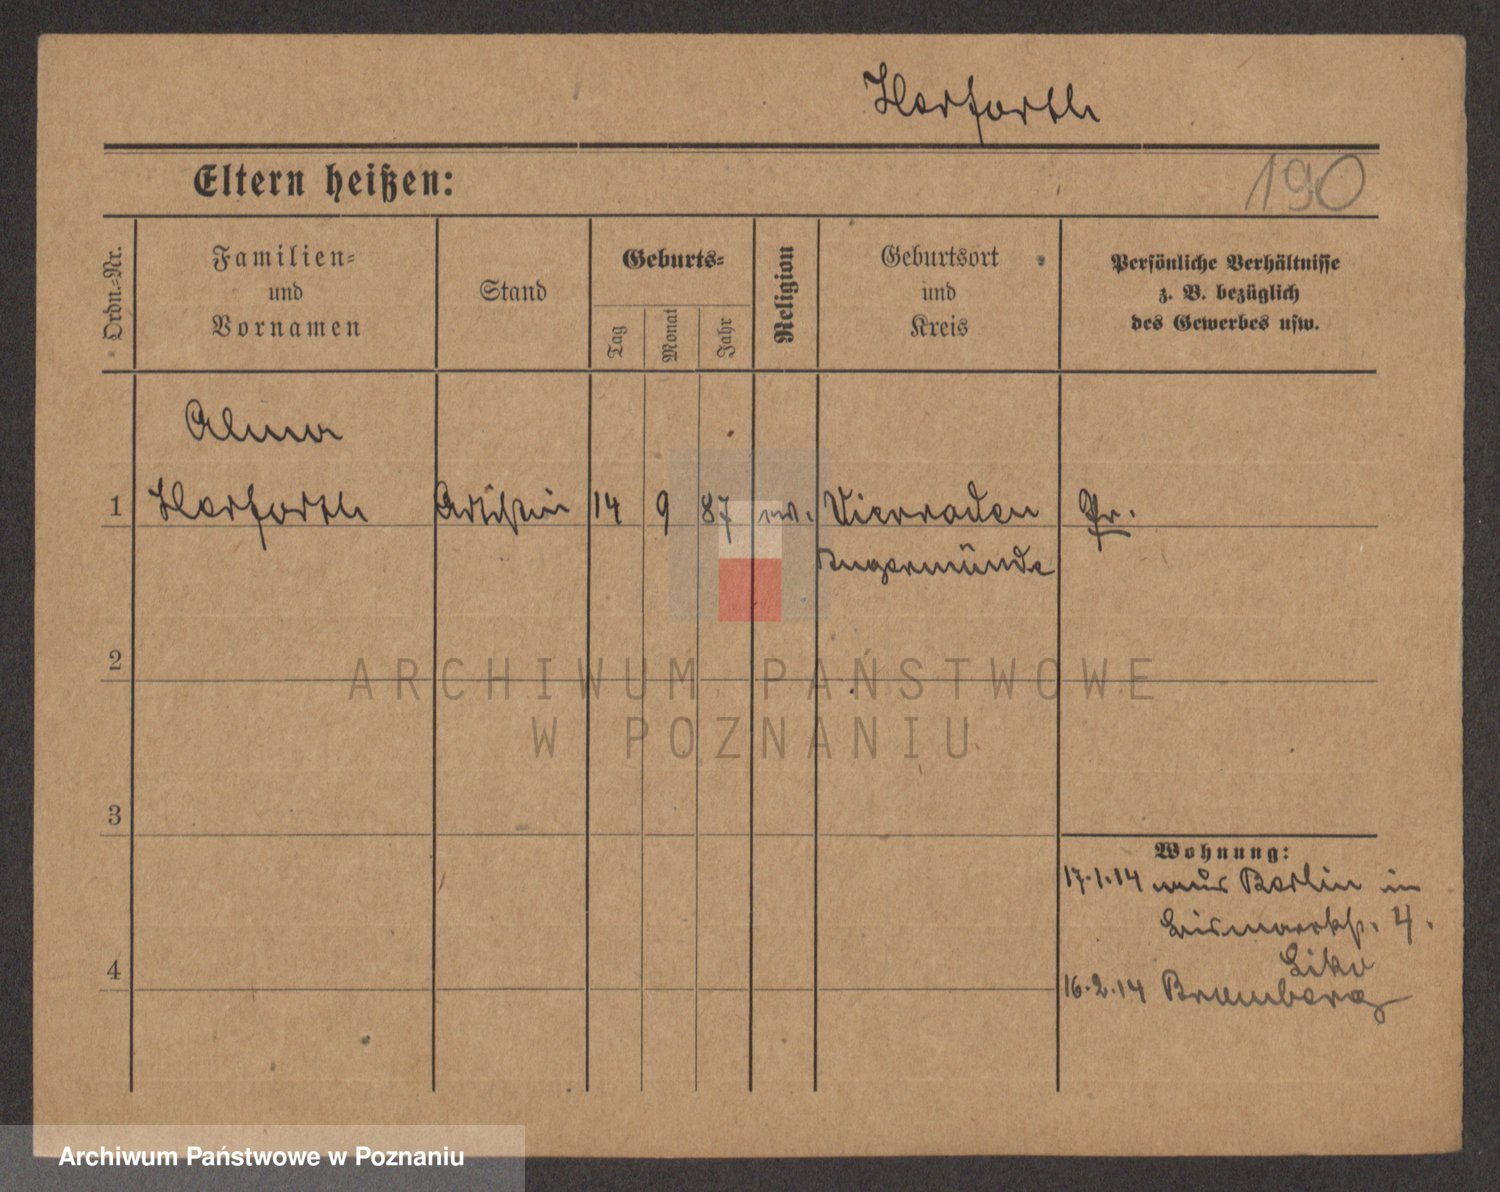 Herforth
Eltern heißen:
190
Ordn.-Nr.
Familien-
und
Vornamen
Stand
Geburts-
Tag
Monat
Jahr
Religion
Geburtsort
und
Kreis
Persönliche Verhältnisse
z. B. bezüglich
des Gewerbes usw.
Alma
1 Herforth Artistin 14 9 87 ev. Vierraden Pr.
Angermünde
2
ARCHIWUM PAŃSTWOWE
W POZNANIU
3
Wohnung:
17.1.14 aus Berlin in
Bismarckst. 4.
4
16.2.14 Bromberg
Archiwum Państwowe w Poznaniu